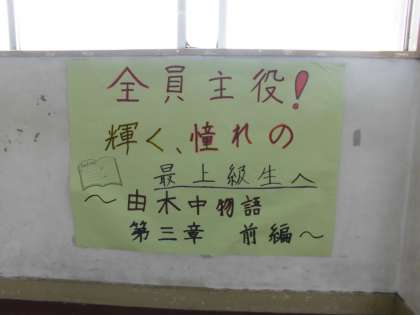 全員主役!
輝く、憧れの
最上級生へ
～由木中物語
第三章 前編～